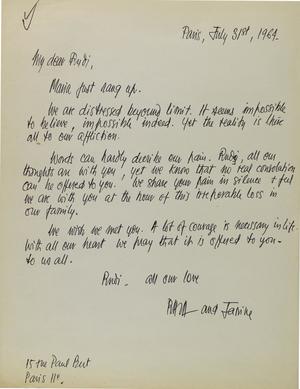 Paris, July 31st, 1964.
My dear Rudi,
Maria just rang up.
We are distressed beyound limit. It seems impossible
to believe, impossible indeed. Yet the reality is here
all to our affliction.
Words can hardly describe our pain. Rudi, all our
thoughts are with you, yet we know that no real consolation
can be offered to you. We share your pain in silence & feel
we are with you at the hour of this irreparable loss in
our family.
We wish we met you. A lot of courage is necessary in life.
With all our heart we pray that it is offered to you -
to us all.
Rudi. all our love
RAZA and Janine
15 rue Paul Bert
Paris 11e.